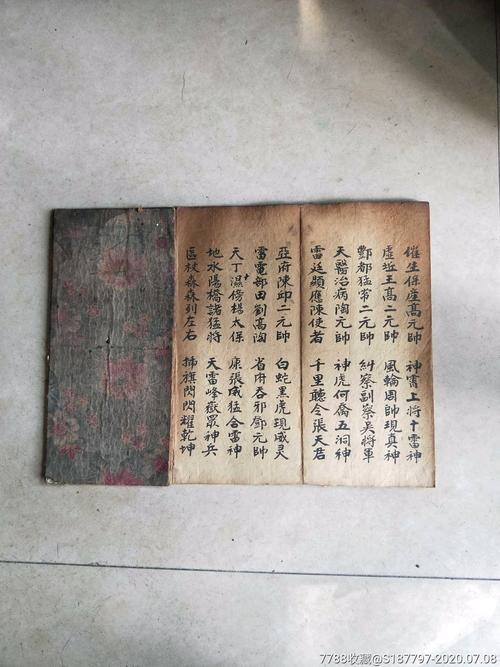 催生保產高元帥 神霄上將十雷神
虛坵王高二元帥 風輪周帥現真神
酆都猛常二元帥 糾察副察吳將軍
天醫治病陶元帥 神虎何喬五洞神
雷廷顕應陳使者 千里聽令張天君
亞府陳邱二元帥 白蛇黑虎現威灵
雷電部田劉高陶 省府吞邪鄧元帥
天丁濕傍楊太保 康張威猛合雷神
地水陽橋諸猛將 天雷峰嶽眾神兵
區杖森森列左右 旗閃閃耀乾坤
7788收藏@S187797-2020.07.08